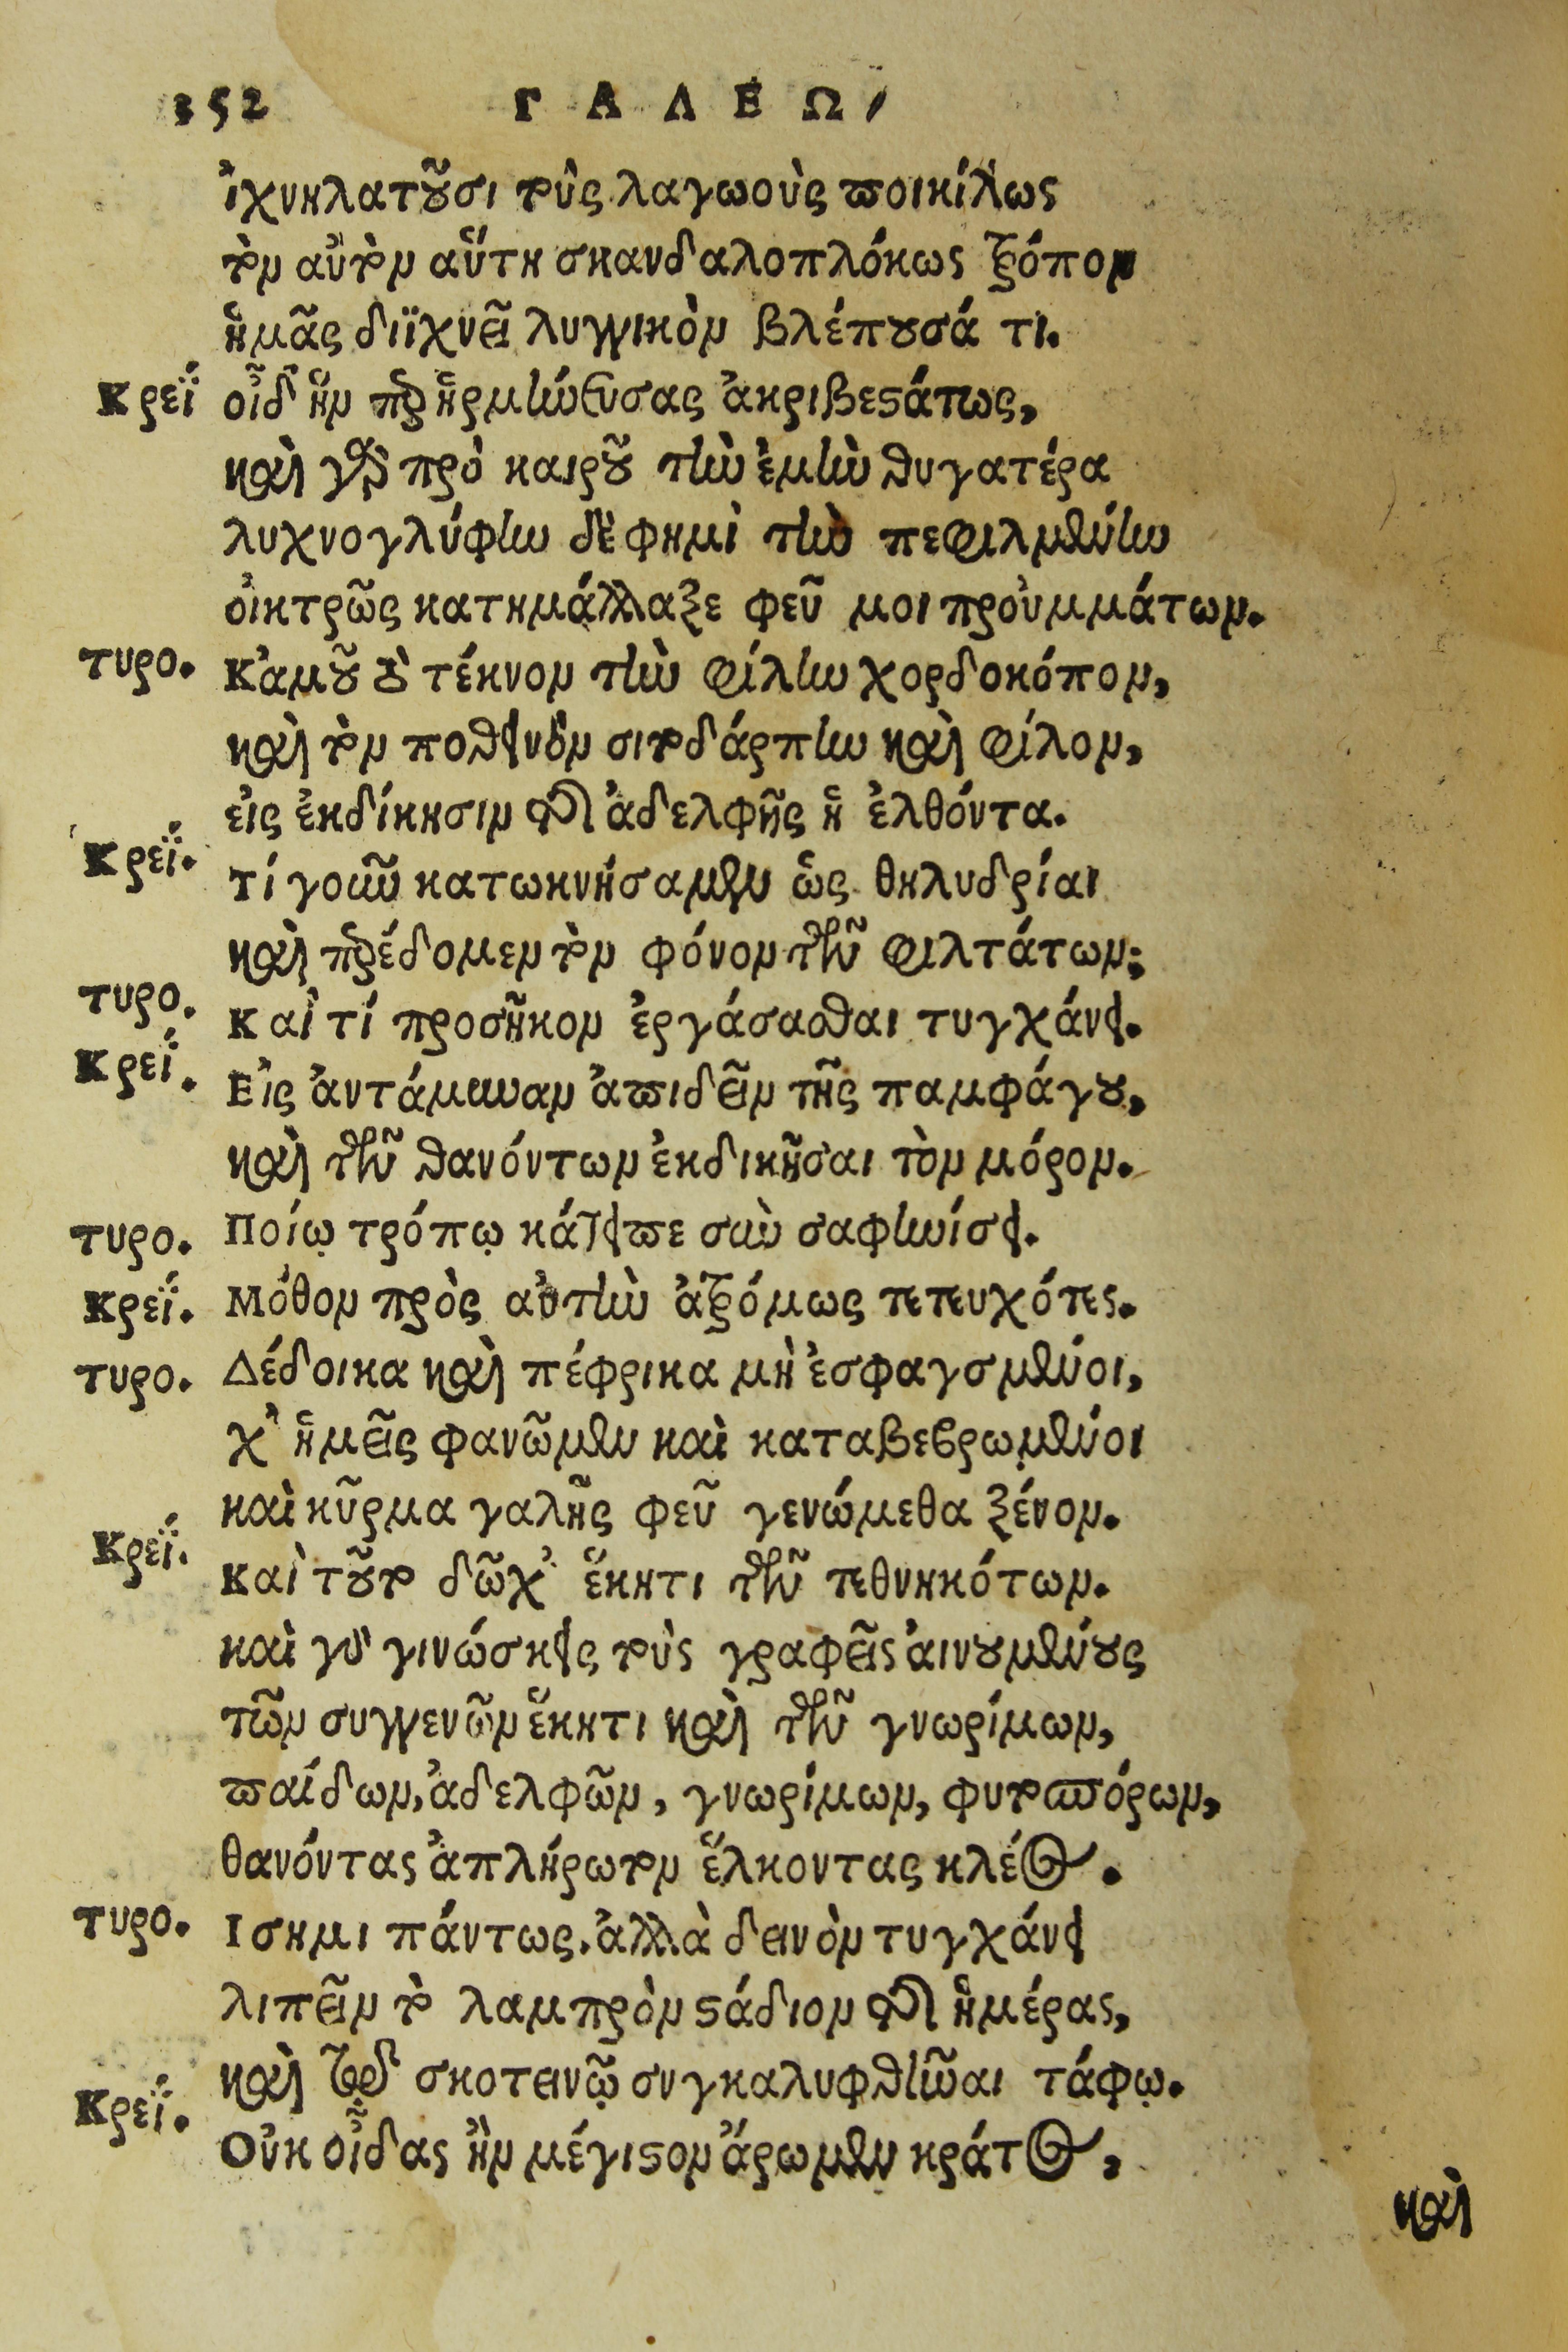 352 ΓΑΛΕΩ,
ἰχνηλατοῦσι τοὺς λαγωοὺς ποικίλως
τὸν αὐτὸν αὕτη σκανδαλοπλόκως τρόπον
ἡμᾶς διϊχνεῖ λυγγικὸν βλέπουσά τι.
Κρεΐ οἶδ' ἣν παρηρμήνευσας ἀκριβεστάτως,
καὶ γὰρ πρὸ καιροῦ τὴν ἐμὴν θυγατέρα
λυχνογλύφην δὲ φημὶ τὴν πεφιλμένην
οἰκτρῶς κατημάλλαξε φεῦ μοι προὐμμάτων.
τυρο. Κἀμοῦ οὐ τέκνον τὴν φίλην χορδοκόπον,
καὶ τὸν ποθεινὸν σιτοδάρπην καὶ φίλον,
εἰς ἐκδίκησιν τῆς ἀδελφῆς ἢ ἐλθόντα.
Κρεΐ. Τί γοῦν κατωκνήσαμεν ὡς θηλυδρίαι
καὶ παρέδομεν τὸν φόνον τῶν φιλτάτων;
τυρο. Καὶ τί προσῆκον ἐργάσασθαι τυγχάνει.
Κρεΐ. Εἰς ἀντάμυναν ἀπιδεῖν τῆς παμφάγου,
καὶ τῶν θανόντων ἐκδικῆσαι τὸν μόρον.
τυρο. Ποίῳ τρόπῳ κάτειπε σὺν σαφηνίσει.
Κρεΐ. Μόθον πρὸς αὐτὴν ἀτρόμως τετευχότες.
τυρο. Δέδοικα καὶ πέφρικα μὴ ἐσφαγσμένοι,
χ' ἡμεῖς φανῶμεν καὶ καταβεβρωμένοι
καὶ κῦρμα γαλῆς φεῦ γενώμεθα ξένον.
Κρεΐ. Καὶ τοῦτο δῶχ' ἕκητι τῶν τεθνηκότων.
καὶ γὰρ γινώσκεις τοὺς γραφεῖς αἰνουμένους
τῶν συγγενῶν ἕκητι καὶ τῶν γνωρίμων,
παίδων, ἀδελφῶν, γνωρίμων, φυτοσπόρων,
θανόντας ἀπλήρωτον ἕλκοντας κλέος.
τυρο. Ισημι πάντως. ἀλλὰ δεινὸν τυγχάνει
λιπεῖν τὸ λαμπρὸν στάδιον τῆς ἡμέρας,
καὶ τῷ δὲ σκοτεινῷ συγκαλυφθῆναι τάφῳ.
Κρεΐ. Οὐκ οἶδας ἣν μέγιστον ἄρωμεν κράτος,
καὶ